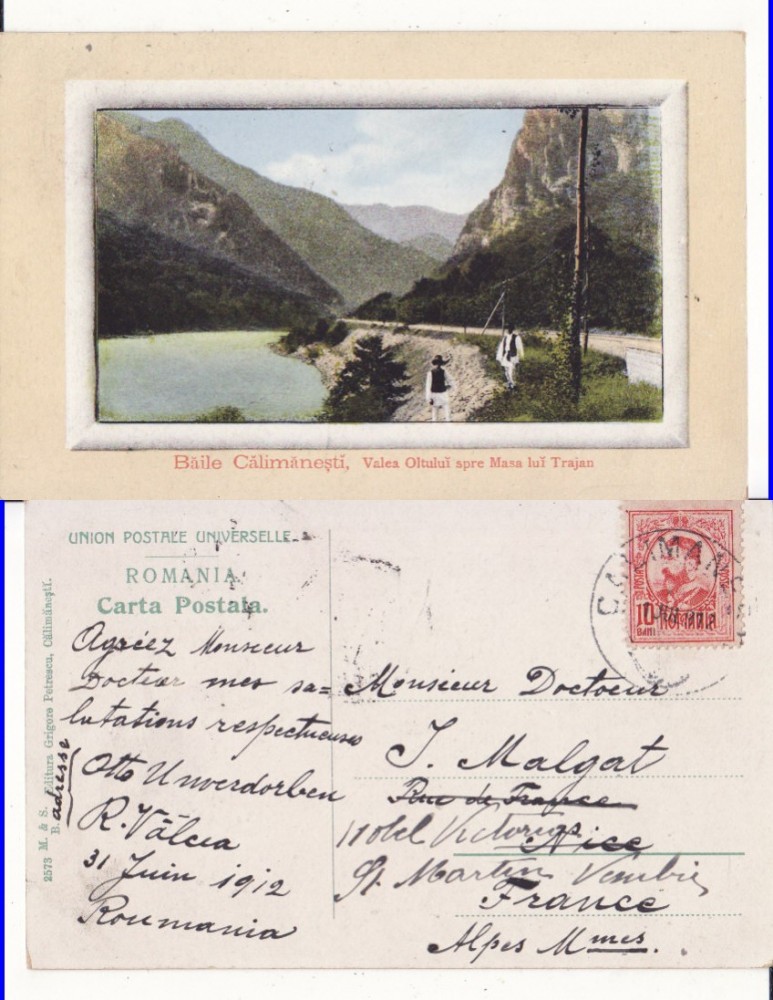 Băile Călimănești, Valea Oltuluĭ spre Masa luĭ Trajan
UNION POSTALE UNIVERSELLE
ROMANIA
Carta Postala.
2573 M. & S. Editura Grigore Petrescu, Călimănești.
B.
Agréez Monsieur
Docteur mes sa=
lutations respectueuses
adresse
Otto Unverdorben
R. Vâlcea
31 Juin 1912
Roumania
CALIMANE
10
BANI
ROMANIA
Monsieur Doctoeur
J. Malgat
Rue de France
Hotel Victoria
Nice
St. Martin Vesubie
France
Alpes Mmes.